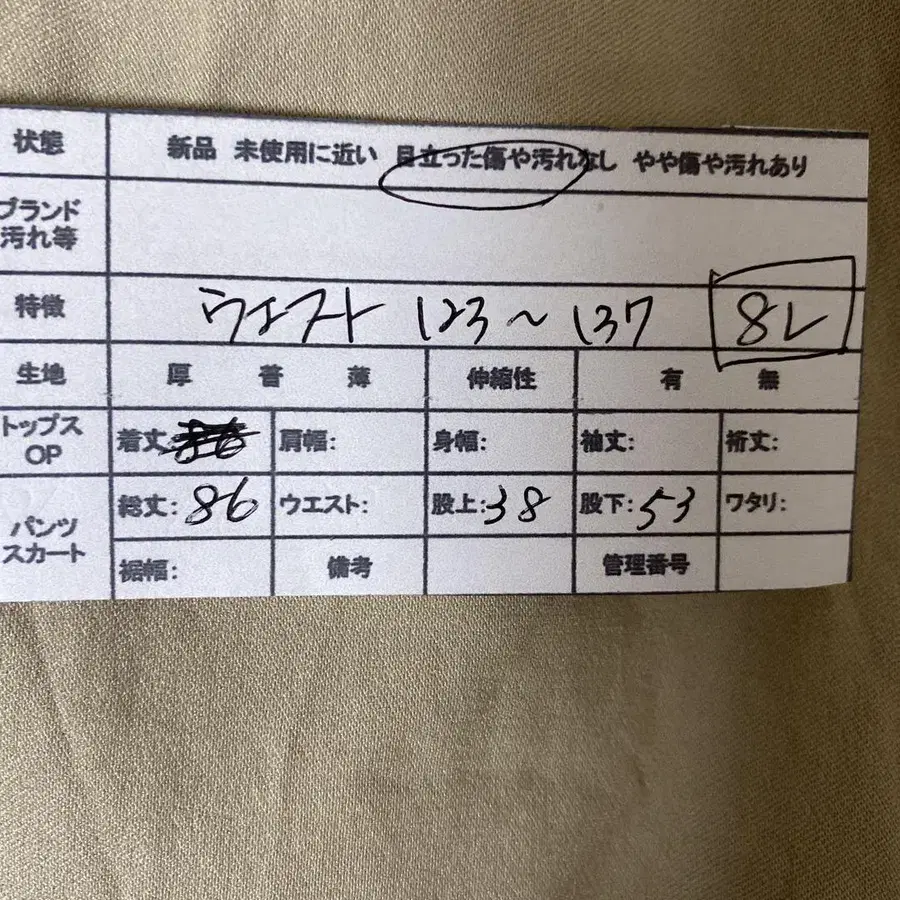 状態 新品 未使用に近い 目立った傷や汚れなし やや傷や汚れあり
ブランド
汚れ等
特徴 ウエスト 123～137 8L
生地 厚 普 薄 伸縮性 有 無
トップス
OP
着丈: 肩幅: 身幅: 袖丈: 裄丈:
パンツ
スカート
総丈: 86 ウエスト: 股上: 38 股下: 53 ワタリ:
裾幅: 備考 管理番号